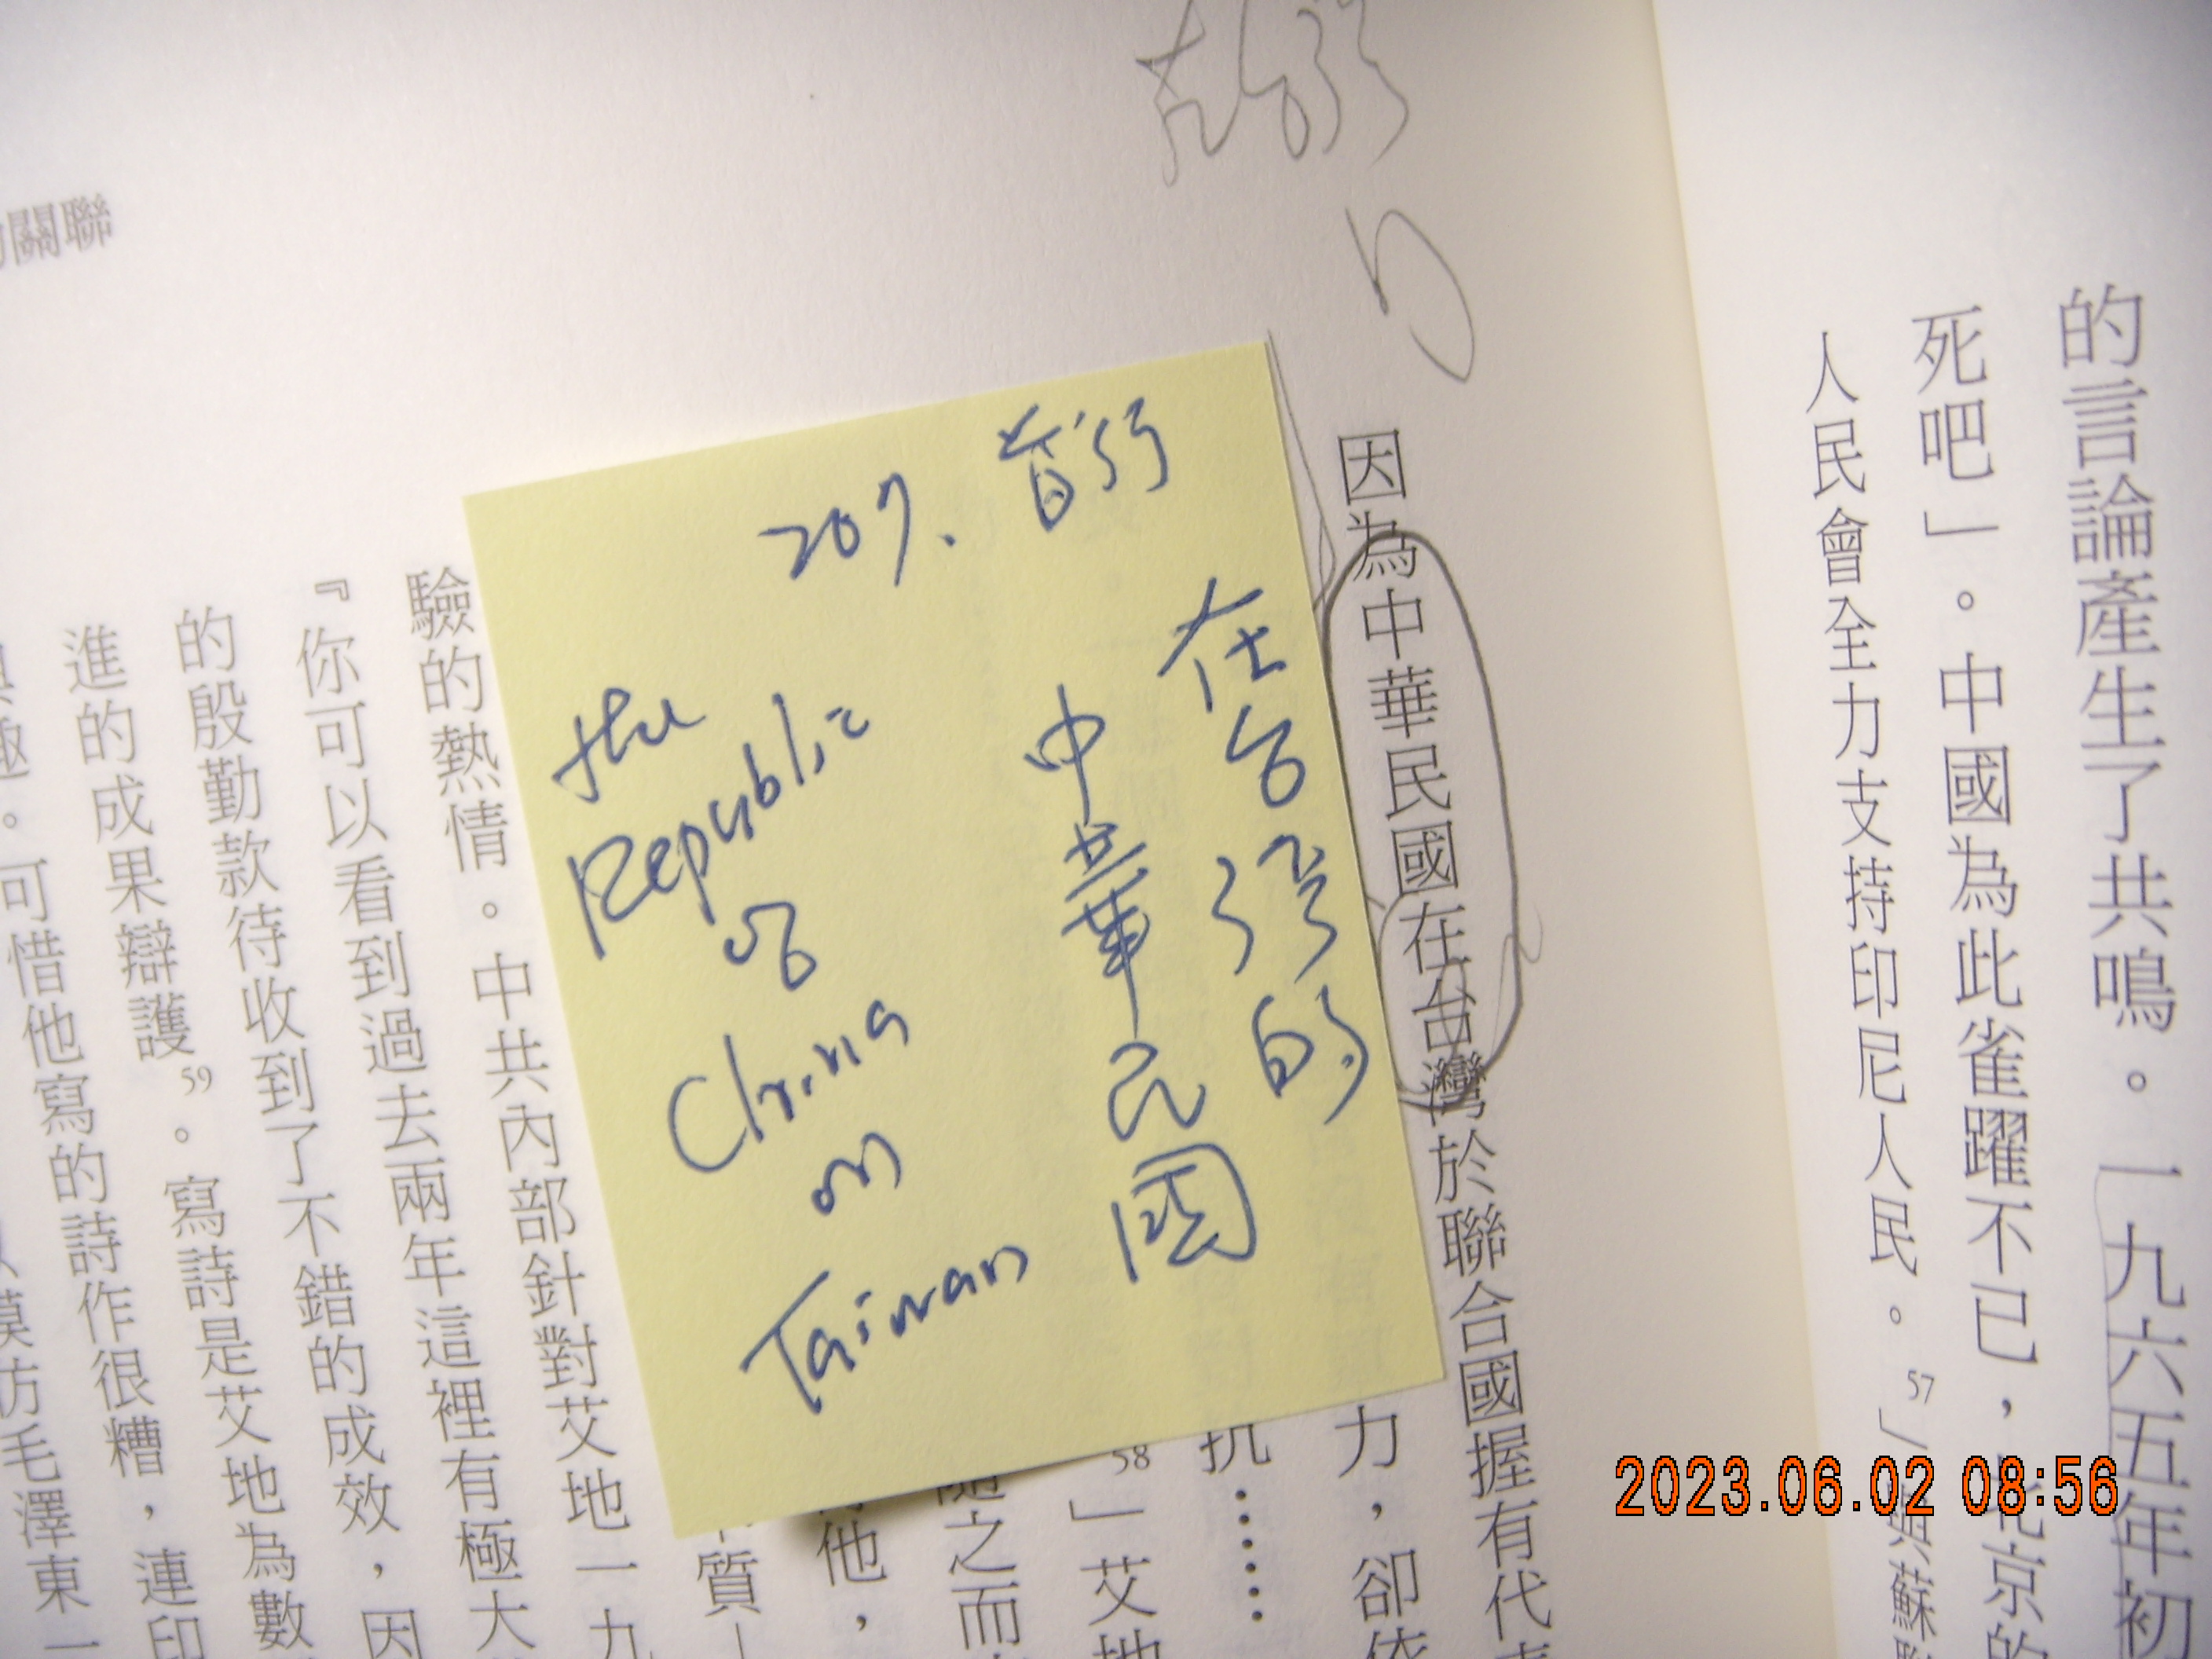 的言論產生了共鳴。一九六五年初
死吧」。中國為此雀躍不已，北京的
人民會全力支持印尼人民。57」與蘇
因為中華民國在台灣於聯合國握有代表
力，卻依
抗……
58」艾地
隨之而
他，
質—
驗的熱情。中共內部針對艾地一九
『你可以看到過去兩年這裡有極大
的殷勤款待收到了不錯的成效，因
進的成果辯護59。寫詩是艾地為數
可惜他寫的詩作很糟，連印
模仿毛澤東一
關聯
207. 首行
在台灣的
中華民國
the
Republic
of
China
on
Taiwan
2023.06.02 08:56